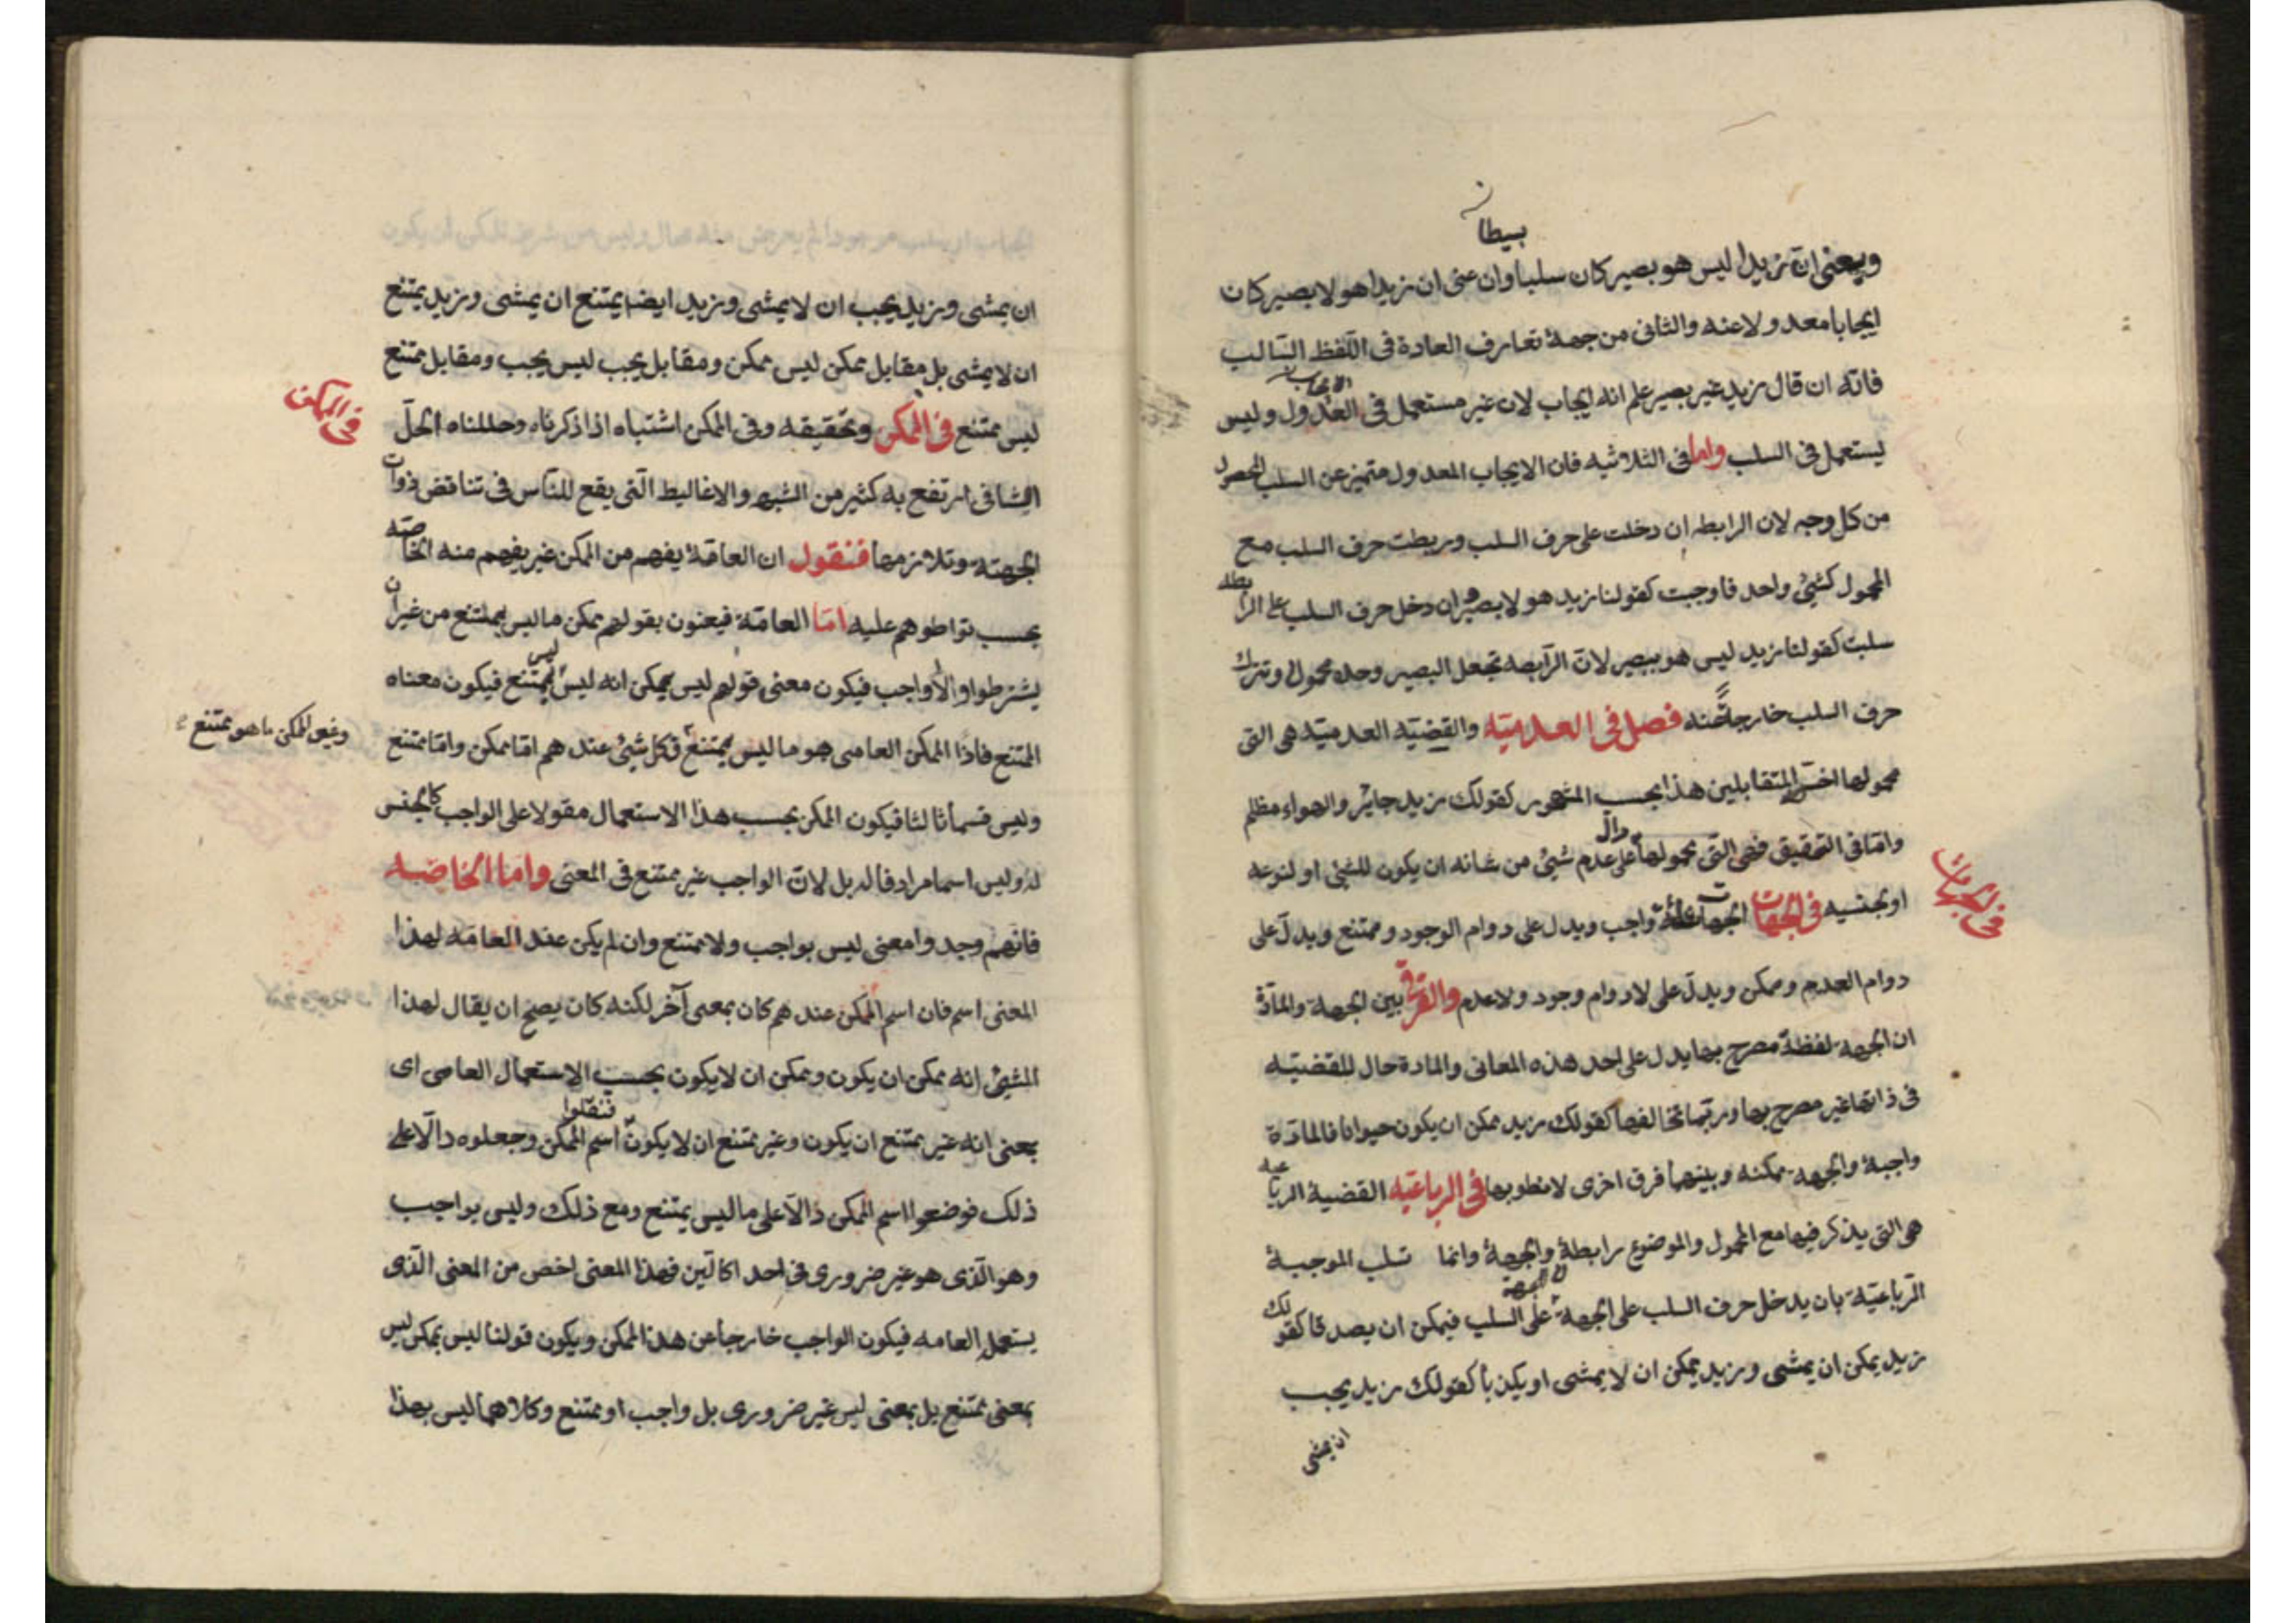 بسيطا
ويعنى ان زيدا ليس هو بصير كان سلبا وان عنى ان زيدا هو لا بصير كان
ايجابا معدولا عنه والثانى من جهة تعارف العادة فى اللفظ السالب
فانه ان قال زيد غير بصير علم انه ايجاب لان غير مستعمل فى العدول وليس
يستعمل فى السلب واما فى الثلاثيه فان الايجاب المعدول متميز عن السلب المحصل
من كل وجه لان الرابطه ان دخلت على حرف السلب وربطت حرف السلب مع
المحمول كشئ واحد فاوجبت كقولنا زيد هو لا بصير وان دخل حرف السلب على الرابطه
سلبت كقولنا زيد ليس هو ببصير لان الرابطه تجعل البصير وحده محمولا وتترك
حرف السلب خارجا عنه فصل فى العدميته والقضيه العدميته هى التى
محمولها اخس المتقابلين هذا بحسب المشهور كقولك زيد جاير والهواء مظلم
وامّا فى التحقيق فهى التى محمولها دال على عدم شئ من شانه ان يكون للشئ او لنوعه
او بجنسه فى الجهات الجهات ثلثه واجب ويدل على دوام الوجود وممتنع ويدل على
فى الجهات
دوام العدم وممكن ويدل على لا دوام وجود ولا عدم والفرق بين الجهة والمادّة
ان الجهه لفظة مصرح بها يدل على احد هذه المعانى والمادة حال للقضيته
فى ذاتها غير مصرح بها وربّما تخالفها كقولك زيد ممكن ان يكون حيوانا فالمادّة
واجبة والجهه ممكنه وبينهما فرق اخرى لا نطول بها فى الرباعيّه القضية الرباعيه
هى التى يذكر فيها مع المحمول والموضوع رابطة والجهة وانما تسلب الموجبة
الرباعيّة بان يدخل حرف السلب على الجهة لا الجهة على السلب فيمكن ان يصدقا كقولك
زيد يمكن ان يمشى وزيد يمكن ان لا يمشى او يكذبا كقولك زيد يجب
ان يمشى
ان يمشى وزيد يجب ان لا يمشى وزيد ايضا يمتنع ان يمشى وزيد يمتنع
ان لا يمشى بل مقابل يمكن ليس يمكن ومقابل يجب ليس يجب ومقابل يمتنع
ليس يمتنع فى الممكن وتحقيقه وفى الممكن اشتباه اذا ذكرناه وحللناه الحلّ
فى الممكن
الشافى ارتفع به كثير من الشبه والاغاليط التى يقع للناس فى تناقض ذوات
الجهته وتلازمها فنقول ان العامّة يفهم من الممكن غير يفهم منه الخاصّه
بحسب تواطوهم عليه امّا العامّة فيعنون بقولهم ممكن ما ليس بممتنع من غير ان
يشترطوا والا واجب فيكون معنى قولهم ليس بممكن انه ليس ليس بممتنع فيكون معناه
الممتنع فاذا الممكن العامى هو ما ليس بممتنع فكل شئ عندهم امّا ممكن وامّا ممتنع
وغير الممكن ما هو ممتنع
وليس قسما ثالثا فيكون الممكن بحسب هذا الاستعمال مقولا على الواجب كالجنس
له وليس اسما مرادفا له بل لان الواجب غير ممتنع فى المعنى واما الخاصّه
فانهم وجدوا معنى ليس بواجب ولا ممتنع وان لم يكن عند العامّه لهذا
المعنى اسم فان اسم الممكن عندهم كان بمعنى آخر لكنه كان يصح ان يقال لهذا
الشئ انه ممكن ان يكون وممكن ان لا يكون بحسب الاستعمال العامى اى
بمعنى انه غير ممتنع ان يكون وغير ممتنع ان لا يكون فنقلوا اسم الممكن وجعلوه دالّا على
ذلك فوضعوا اسم الممكن دالّا على ما ليس بممتنع ومع ذلك وليس بواجب
وهو الّذى هو غير ضرورى فى احد الحالين فهذا المعنى اخص من المعنى الّذى
يستعمله العامه فيكون الواجب خارجا عن هذا الممكن ويكون قولنا ليس بممكن ليس
بمعنى ممتنع بل بمعنى ليس غير ضرورى بل واجب او ممتنع وكلاهما ليس بهذا